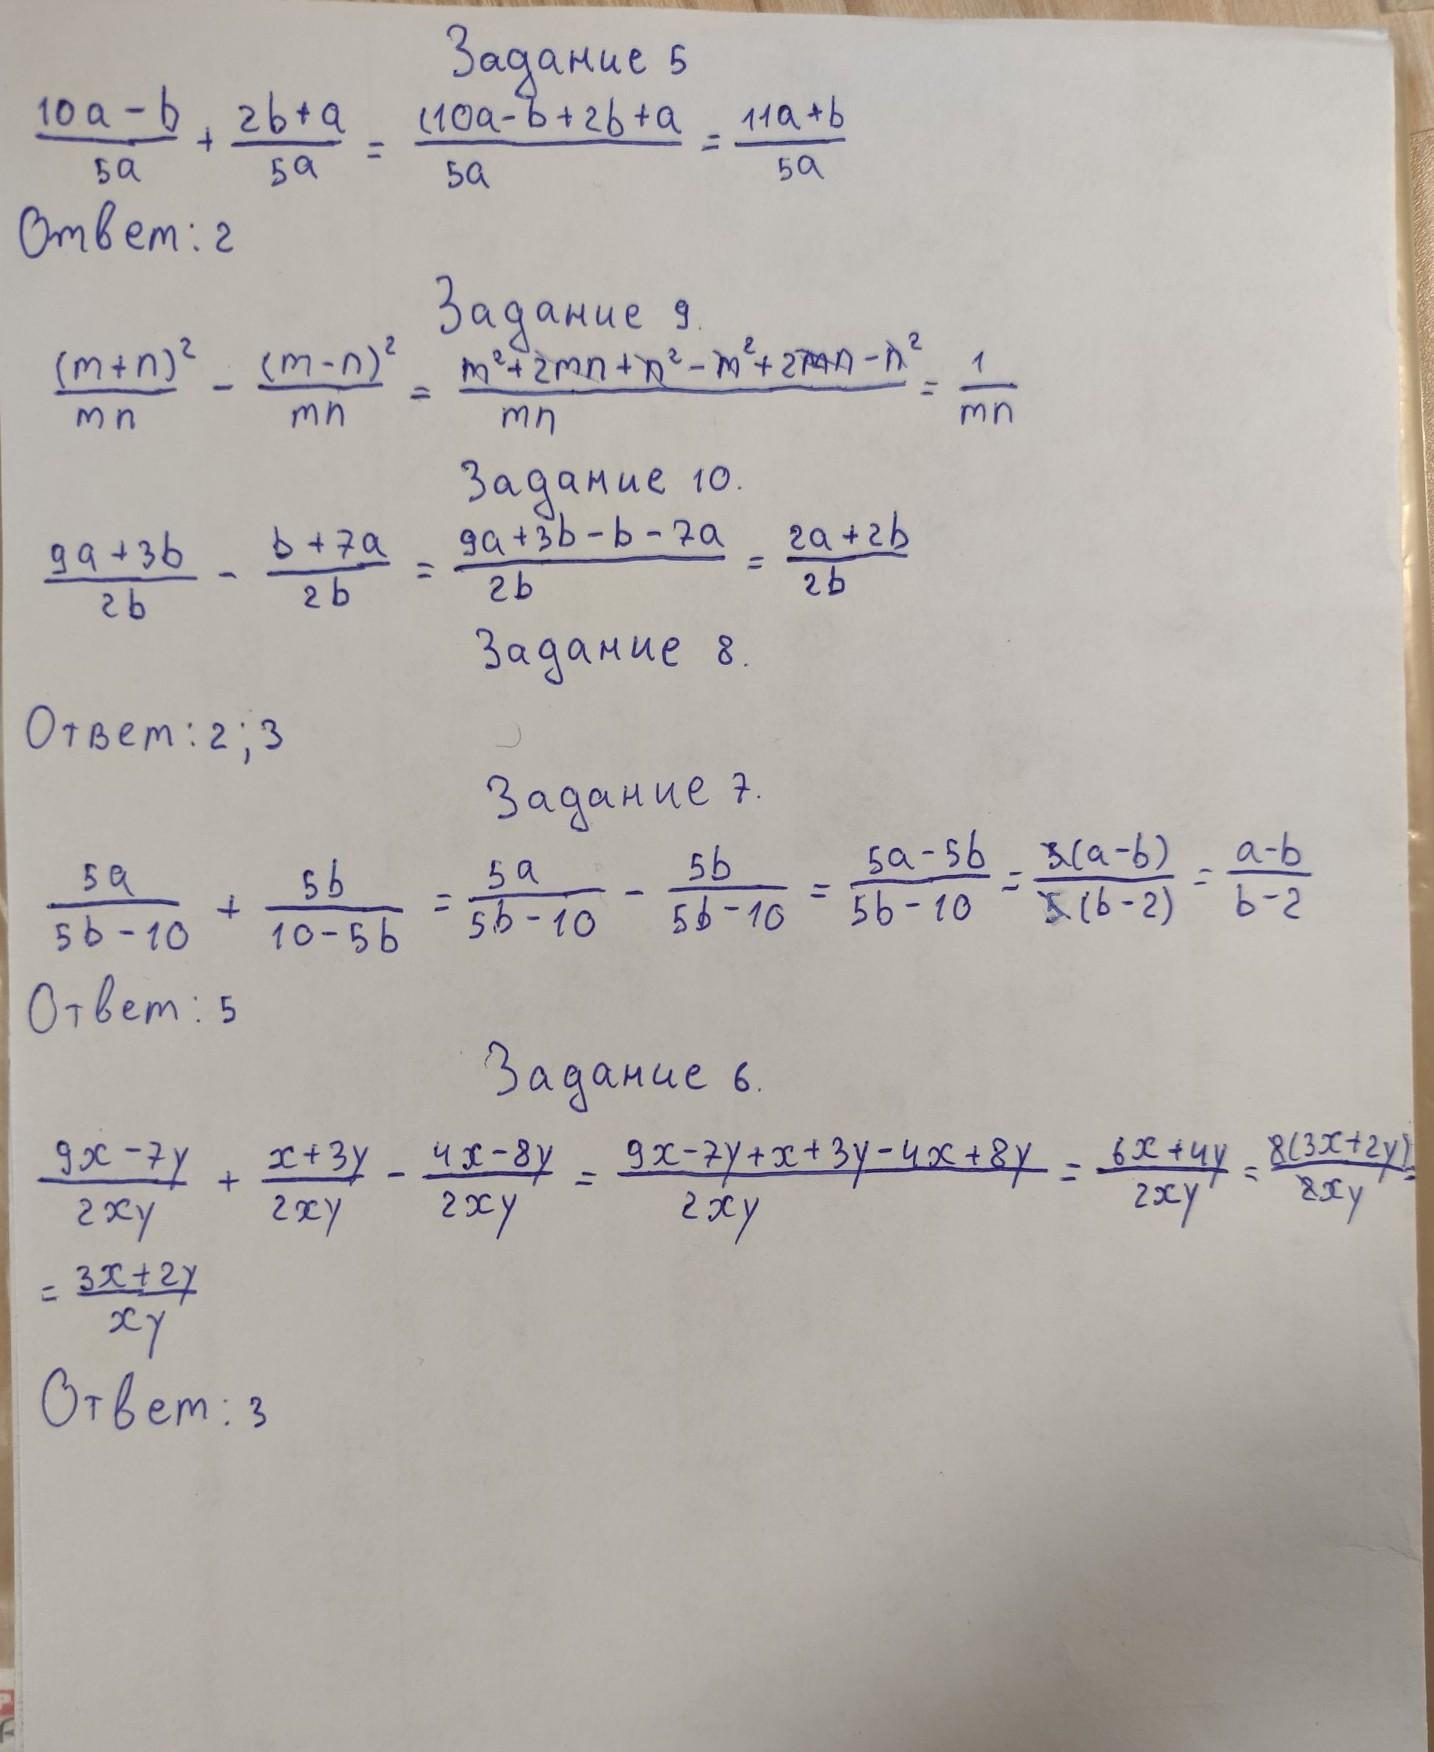 Задание 5
(10a-b)/(5a) + (2b+a)/(5a) = (10a-b+2b+a)/(5a) = (11a+b)/(5a)
Ответ: 2
Задание 9.
(m+n)²/(mn) - (m-n)²/(mn) = (m²+2mn+n²-m²+2mn-n²)/(mn) = 1/(mn)
Задание 10.
(9a+3b)/(2b) - (b+7a)/(2b) = (9a+3b-b-7a)/(2b) = (2a+2b)/(2b)
Задание 8.
Ответ: 2; 3
Задание 7.
(5a)/(5b-10) + (5b)/(10-5b) = (5a)/(5b-10) - (5b)/(5b-10) = (5a-5b)/(5b-10) = 5(a-b)/5(b-2) = (a-b)/(b-2)
Ответ: 5
Задание 6.
(9x-7y)/(2xy) + (x+3y)/(2xy) - (4x-8y)/(2xy) = (9x-7y+x+3y-4x+8y)/(2xy) = (6x+4y)/(2xy) = 2(3x+2y)/(2xy) =
= (3x+2y)/(xy)
Ответ: 3